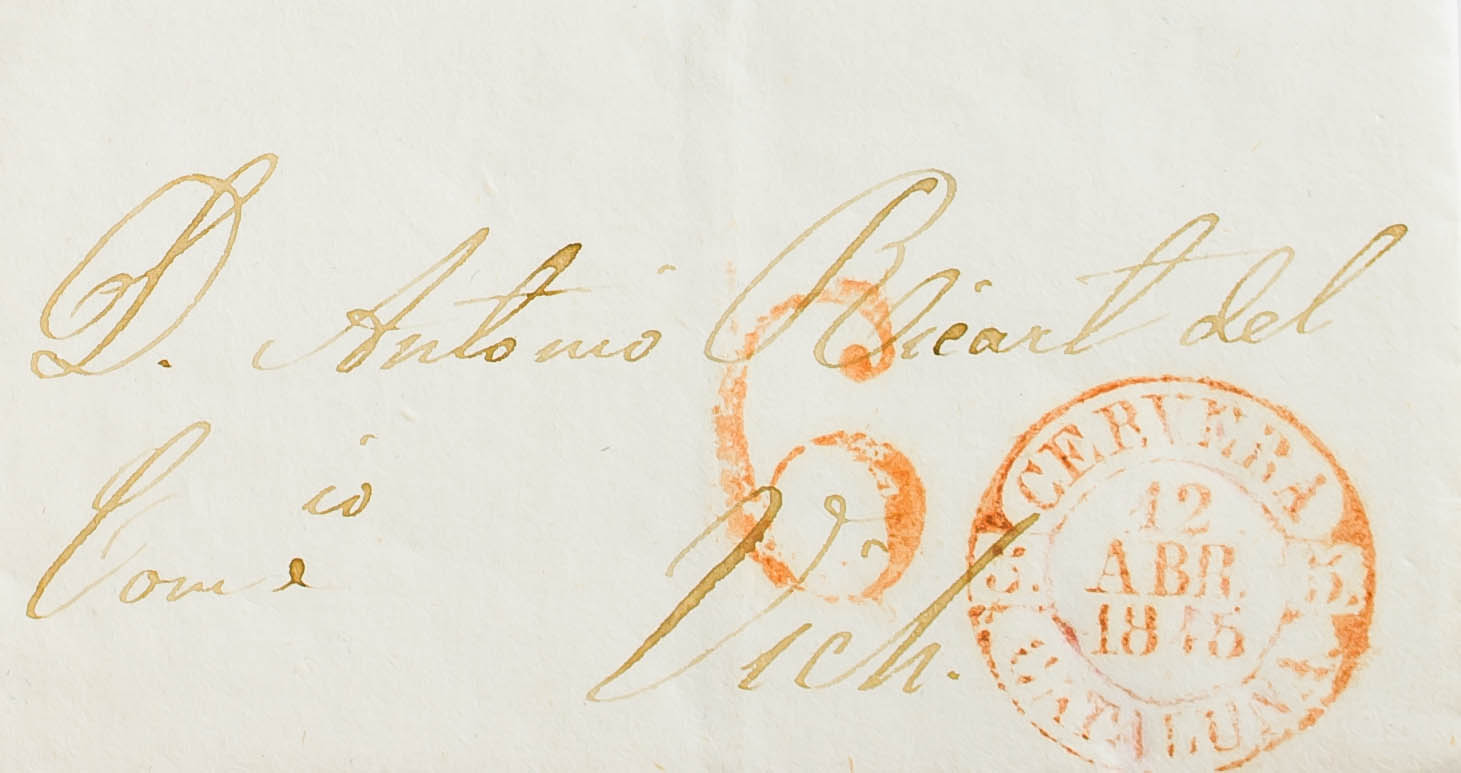 D. Antonio Ricart del
Come io
Vich.
6
CERVERA
12
ABR.
1845
CATALUÑA